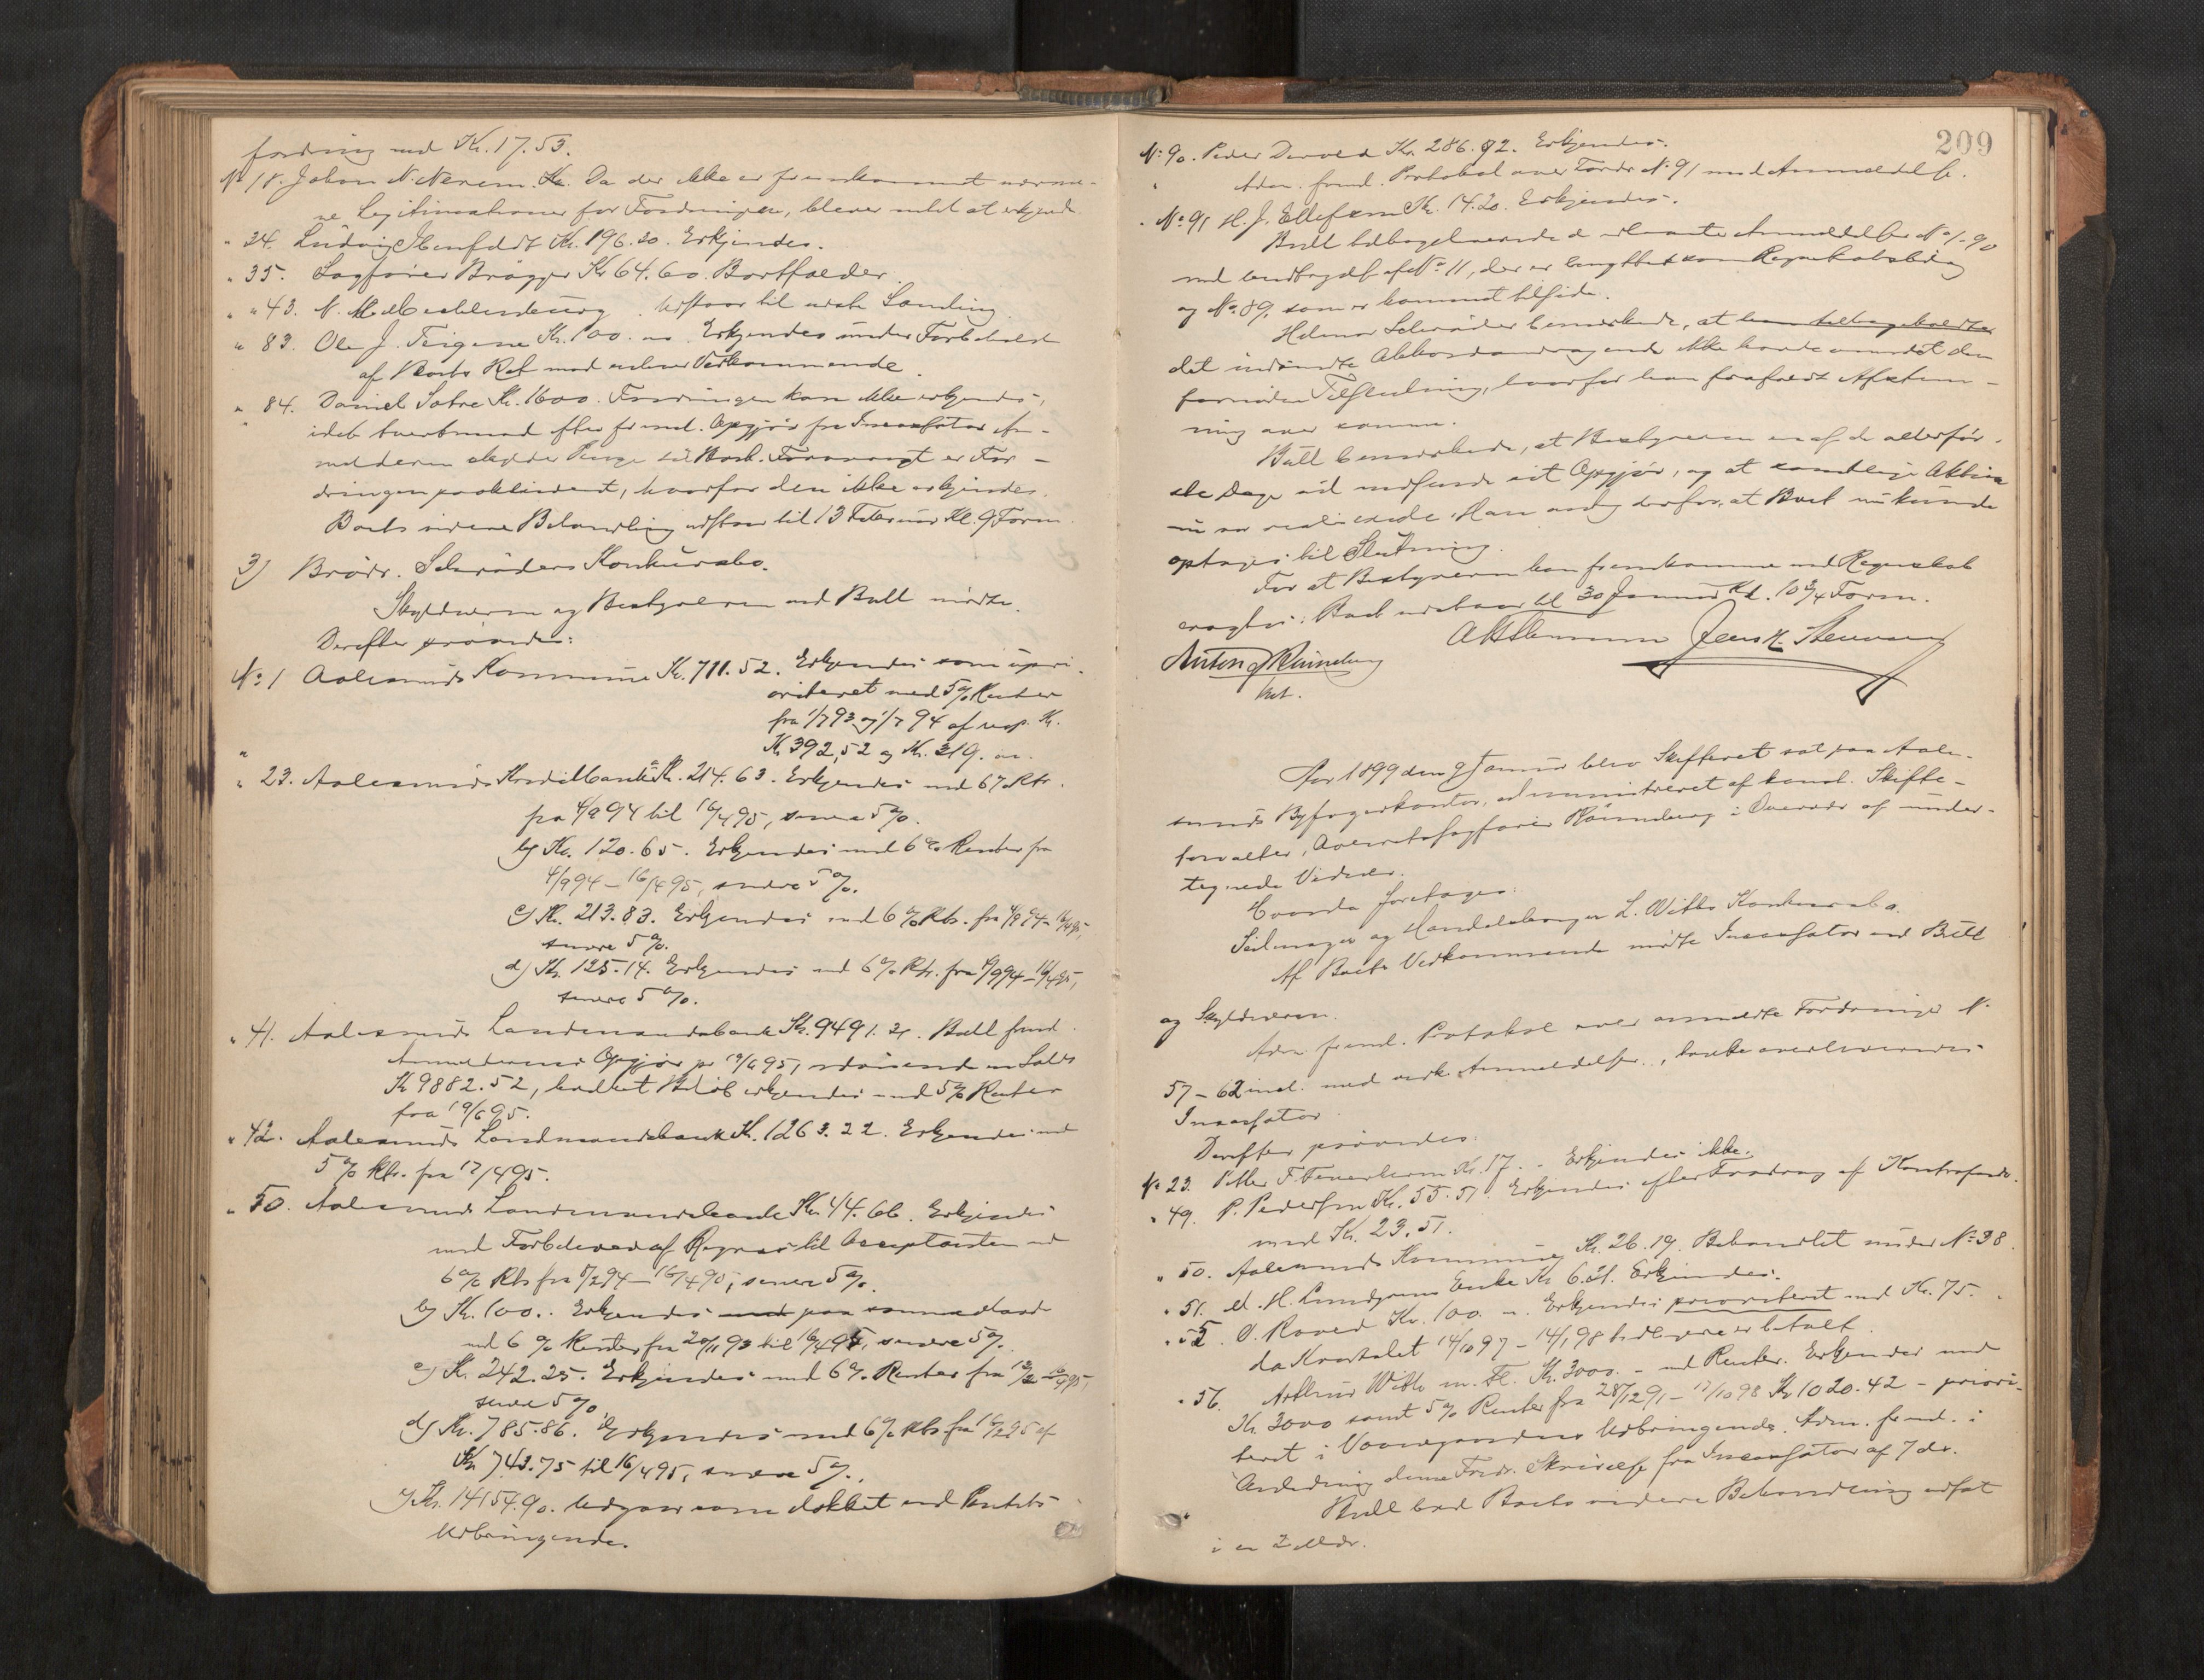 fordring med Kr. 17.53.
No 18. Johan N. Nerem. Kr. Da der ikke er fremkommet nærme-
re Legitimationer for Fordringen, blever den at erkjende
" 34. Ludvig Ibenfeldt Kr. 196.20. Erkjendes.
" 35. Sagfører Brøgger Kr 64.60. Bortfalder.
" 43. N. M. Mecklenburg. Udstaar til næste Samling.
" 83. Ole J. Teigene Kr. 100. - Erkjendes under Forbehold
af Boets Ret mod enhver Vedkommende.
" 84. Daniel Satre Kr. 1600. Fordringen kan ikke erkjendes,
idet tvertimod efter freml. Opgjør fra Incassator An-
melderen skylder Penge til Boet. Forøvrigt er For-
dringen prækluderet, hvorfor den ikke erkjendes.
Boets videre Behandling udstaar til 13 Februar Kl. 9 Form.
3) Brødr. Schrøders Konkursbo.
Skyldneren og Bestyreren ved Bull mødte.
Derefter prøvedes:
No 1 Aalesunds Kommune Kr. 711.52. Erkjendes som upri-
oriteret med 5% Renter
fra 1/7 93 og 1/7 94 af resp. Kr.
Kr. 392,52 og Kr. 319. -
" 23. Aalesunds Kreditbank a) Kr. 214.63. Erkjendes med 6% Rtr.
fra 4/9 94 til 16/4 95, senere 5%.
b) Kr. 120.65. Erkjendes med 6% Renter fra
4/9 94 - 16/4 95, senere 5%.
c) Kr. 213.83. Erkjendes med 6% Rtr. fra 4/9 94 - 16/4 95,
senere 5%.
d) Kr. 125.14. Erkjendes med 6% Rtr. fra 4/9 94 - 16/4 95,
senere 5%.
" 41. Aalesunds Landmandsbank Kr. 9491.21. Bull freml.
Anmelderens Opgjør pr 19/6 95, udvisende en Saldo
Kr 9882.52, hvilket Beløb erkjendes med 5% Renter
fra 19/6 95.
" 42. Aalesunds Landmandsbank Kr. 1263.22. Erkjendes med
5% Rtr. fra 17/4 95.
" 50. Aalesunds Landmandsbank Kr. 44.66. Erkjendes
med Forbehold af Regres til Acceptanten med
6% Rtr fra 5/2 94 - 16/4 95, senere 5%.
b) Kr. 100. - Erkjendes med paa samme Maade
med 6% Renter fra 20/11 93 til 16/4 95, senere 5%.
c) Kr. 242.25. Erkjendes med 6% Renter fra 12/2 - 16/4 95,
senere 5%.
d) Kr. 785.86. Erkjendes med 6% Rtr fra 16/2 95 af
Kr 743.75 til 16/4 95, senere 5%.
Kr. 14154.90. Udgaar som dækket ved Pantets
Udbringende.
209
No 90. Peder Dervold Kr. 286.92. Erkjendes.
Adm. freml. Protokol over Fordr No 91 med Anmeldelse.
No 91 H. J. Ellefsen Kr. 14.20. Erkjendes.
Bull tilbageleverede de udlaante Anmeldelser No 1-90
med Undtagelse af No 11, der er benyttet som Regnskabsbilag
og No 89, som er kommet tilside.
Helmer Schrøder bemærkede, at han tilbageholdte
det indsendte Akkordandragende ikke havde vundet den
fornødne Tilslutning, hvorfor han frafaldt Afstem-
ning over samme.
Bull bemærkede, at Bestyreren en af de allerfør-
ste Dage vil indsende sit Opgjør, og at samtlige Aktiva
nu var realiserede. Han androg derfor, at Boet nu kunde
optages til Slutning.
For at Bestyreren kan fremkomme med Regnskab
eragtes: Boet udstaar til 30 Januar Kl. 10 3/4 Form.
Anton J Rønneberg
kst.
Aar 1899 den 9 Januar blev Skifteret sat paa Aale-
sunds Byfogedkontor, administreret af konst. Skifte-
forvalter, Overretssagfører Rønneberg i Overvær af under-
tegnede Vidner.
Hvorda foretages:
Seilmager og Handelsborger L. Witts Konkursbo.
Af Boets Vedkommende mødte Incassator ved Bull
og Skyldneren.
Adm freml. Protokol over anmeldte Fordringer No
57 - 62 incl. med verk Anmeldelser, hvilke overleveredes
Incassator.
Derefter prøvedes:
No 23. Petter F. Fennerheim Kr. 17. - Erkjendes ikke.
" 49. P. Pedersen Kr. 55.51. Erkjendes efter Fradrag af Kontrafordr.
med Kr. 23.51.
" 50. Aalesunds Kommune Kr. 26.19. Behandlet under No 38.
" 51. M. H. Lundgrens Enke Kr 6.21. Erkjendes.
" 52. O. Roved Kr. 100. - Erkjendes prioriteret med Kr. 75.
da Kvartalet 14/10 97 - 14/1 98 tidligere er betalt.
" 56. Arthur Witt m. Fl. Kr. 3000. - med Renter. Erkjendes med
Kr. 3000 samt 5% Renter fra 28/12 91 - 17/10 98 Kr 1020.42 - priori-
teret i Vaaregaardens Udbringende. Adm. freml. i
Anledning denne Fordr. Skrivelse fra Incassator af 7 ds.
Bull bad Boets videre Behandling udsat
i en 2 Mdr.